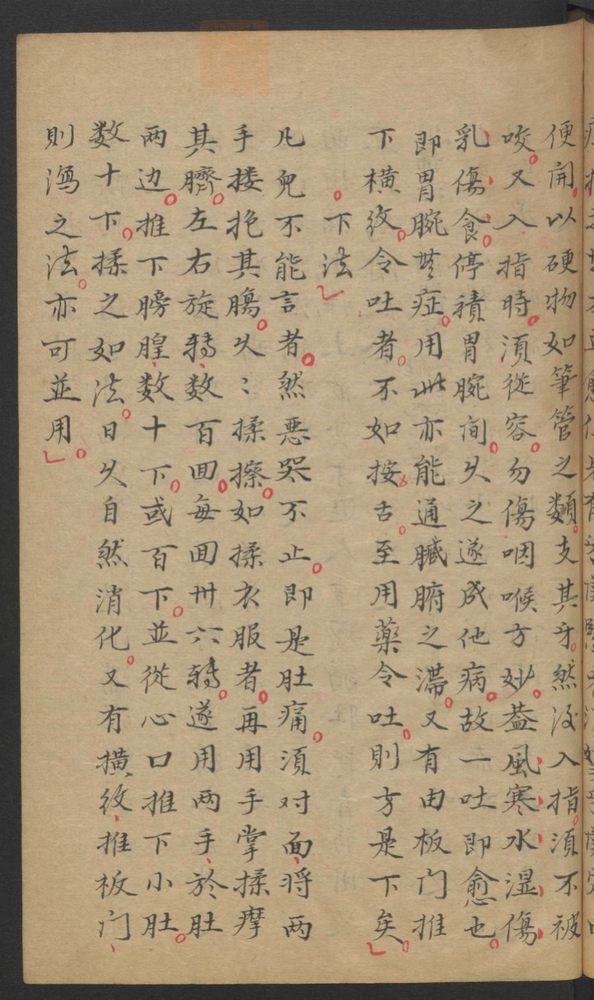 便開以硬物如筆管之類支其牙然後入指須不被
咬又入指時須從容勿傷咽喉方妙葢風寒水濕傷
乳傷食停積胃腕间久之遂成他病故一吐即愈也
即胃腕無症用此亦能通臟腑之滯又有由板门推
下横紋令吐者不如按舌至用藥令吐則方是下矣
下法
凡兒不能言者然悪哭不止即是肚痛須对面将两
手搂抱其腸久〻揉擦如揉衣服者再用手掌揉摩
其臍左右旋转数百囬每囬卅六转遂用两手於肚
两边推下膀胱数十下或百下並從心口推下小肚
数十下揉之如法日久自然消化又有横紋推板门
則瀉之法亦可並用